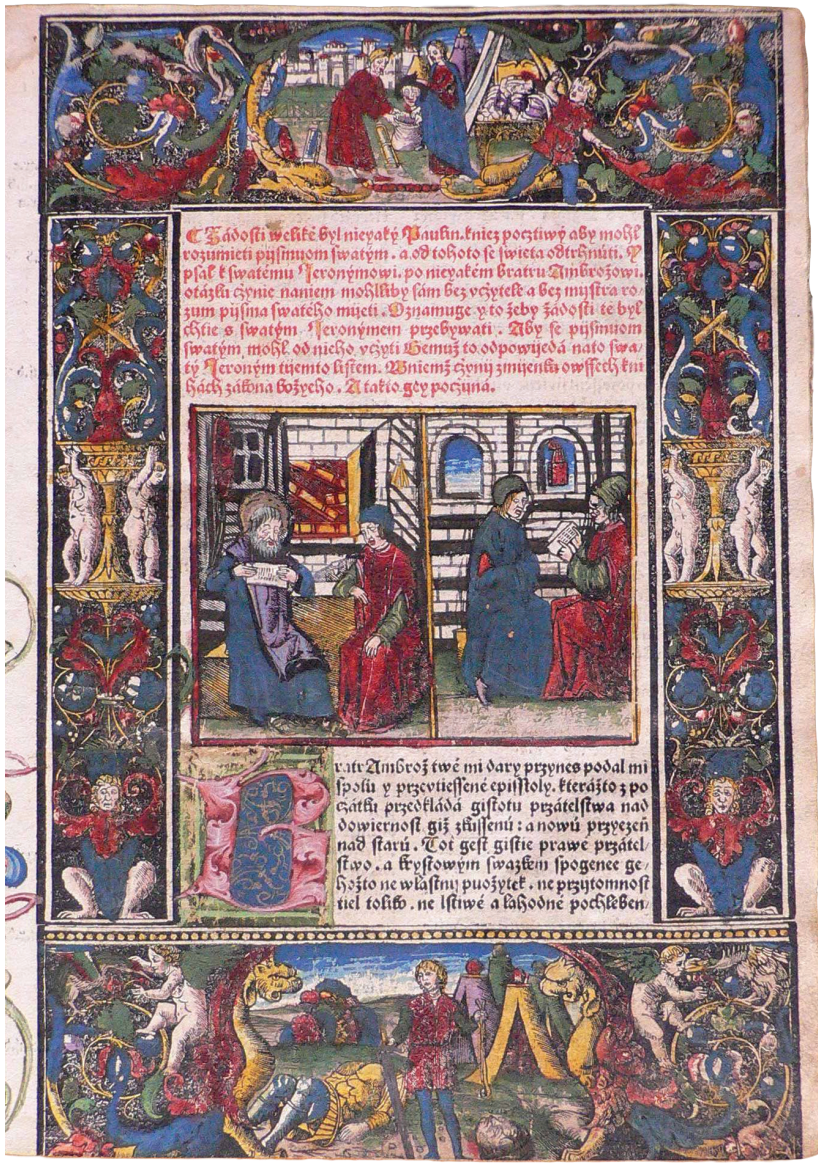 Žádosti weliké byl nieyaký Paulin. kniez pocztiwý aby mohl
rozumieti pijsmuom swatým . a od tohoto se swieta odtrhnúti. Y
psal k swatému Jeronýmowi. po nieyakém bratru Ambrožowi.
otázku czynie naniem mohlliby sám bez vczytele a bez mijstra ro-
zum pijsma swatého mijeti . Oznamuge y to žeby žádosti té byl
chtie s swatým Jeronýmem przebywati . Aby se pijsmuom
swatým mohl od nieho vczyti Gemuž to odpowijedá nato swa-
tý Jeroným tijemto listem. Wniemž czynij zmijenku owssech kni
hách zákona božyeho . A takto gey poczijná.
Bratr Ambrož twé mi dary przynes podal mi
spolu y przevtiessené episstoly. kterážto z po
czátku przedkládá gistotu przátelstwa nad
dowiernost giž zkussenú : a nowú przyezeň
nad starú . Tot gest gistie prawé przátel-
stwo . a krystowým swazkem spogenee ge-
hožto ne wlastnij puožytek . ne przijtomnost
tiel toliko . ne lstiwé a lahodné pochleben-